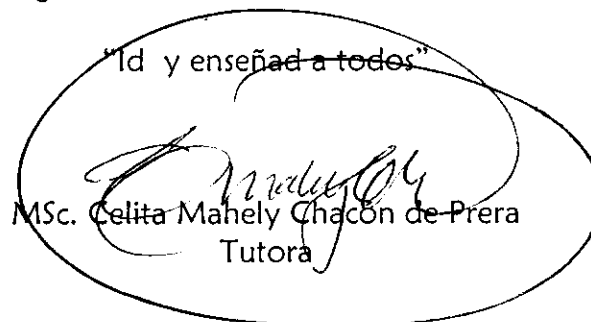 “Id y enseñad a todos”
MSc. Celita Mahely Chacón de Prera
Tutora